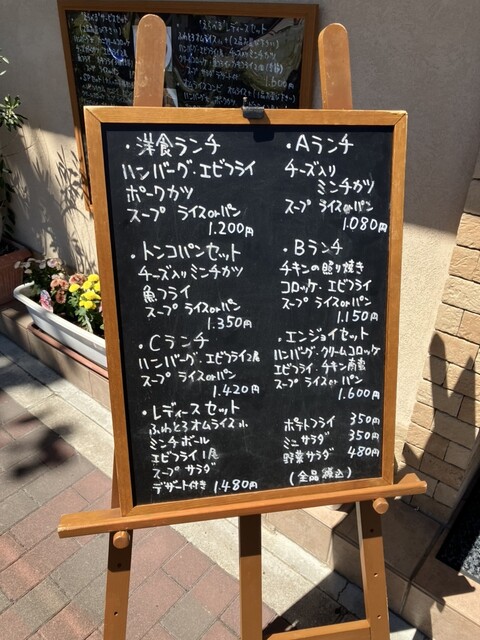 ・洋食ランチ
ハンバーグ・エビフライ
ポークカツ
スープ ライスorパン
1.200円
・トンコパンセット
チーズ入りミンチカツ
魚フライ
スープ ライスorパン
1.350円
・Cランチ
ハンバーグ・エビフライ2尾
スープ ライスorパン
1.420円
・レディースセット
ふわとろオムライス小
ミンチボール
エビフライ1尾
スープ サラダ
デザート付き 1.480円
・Aランチ
チーズ入り
ミンチカツ
スープ ライスorパン
1.080円
・Bランチ
チキンの照り焼き
コロッケ・エビフライ
スープ ライスorパン
1.150円
・エンジョイセット
ハンバーグ・クリームコロッケ
エビフライ・チキン南蛮
スープ ライスorパン
1.600円
ポテトフライ 350円
ミニサラダ 350円
野菜サラダ 480円
(全品税込)
レディースセット
1.600円